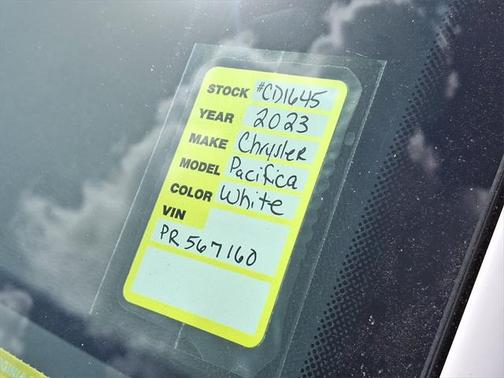 STOCK #CD1645
YEAR 2023
MAKE Chrysler
MODEL Pacifica
COLOR White
VIN
PR567160